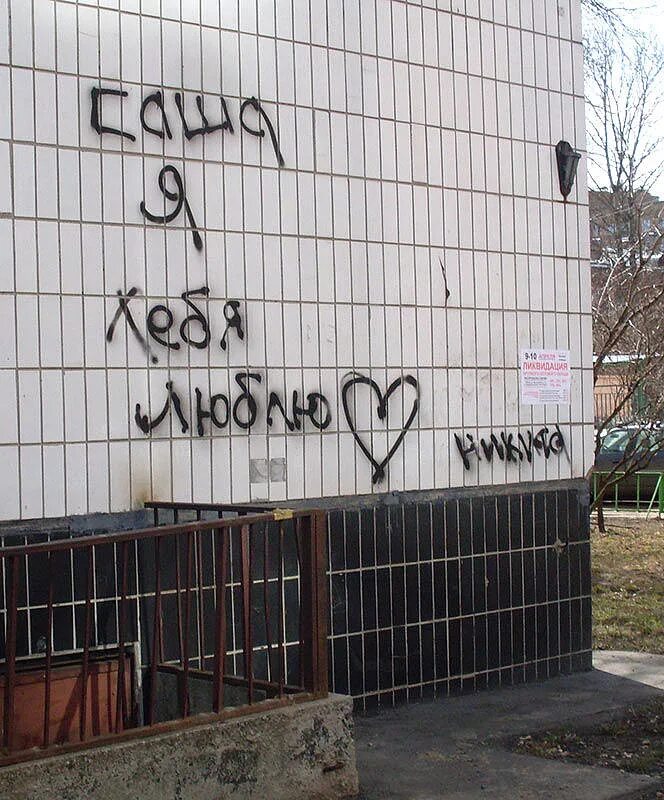 саша
я
тебя
люблю
никита
9-10 АПРЕЛЯ
ЛИКВИДАЦИЯ